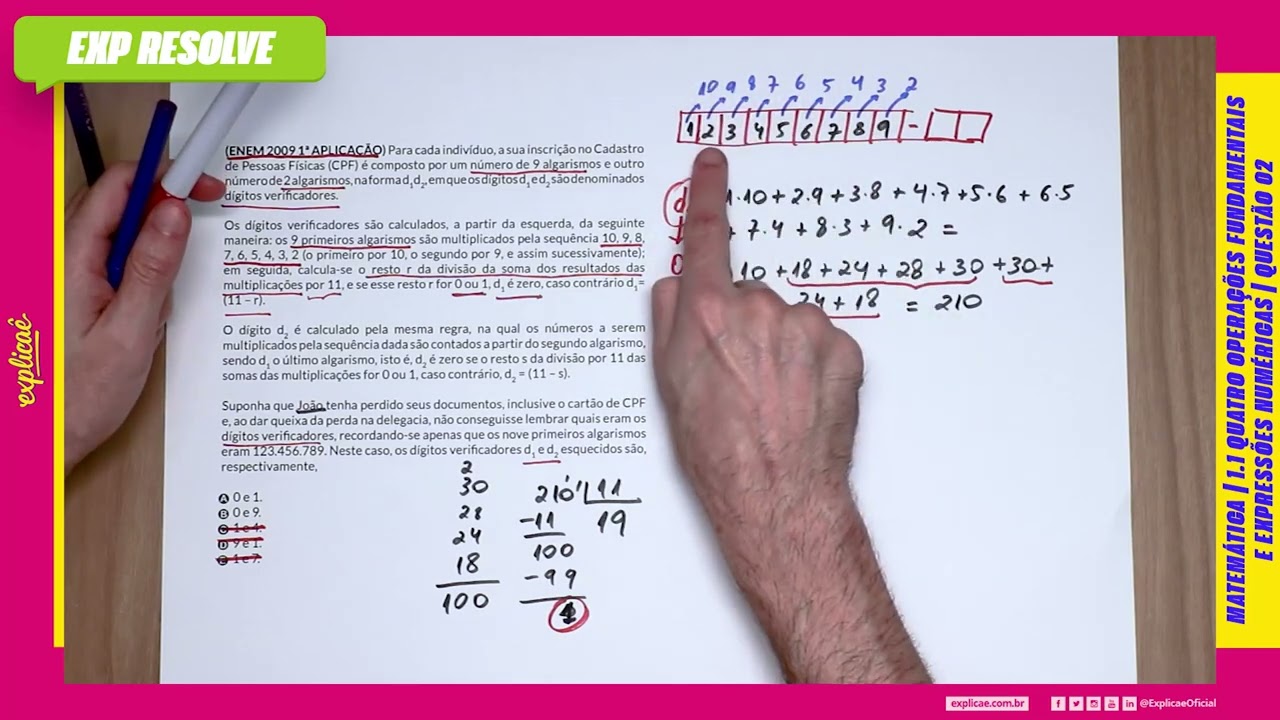 EXP RESOLVE
(ENEM 2009 1ª APLICAÇÃO) Para cada indivíduo, a sua inscrição no Cadastro
de Pessoas Físicas (CPF) é composto por um número de 9 algarismos e outro
número de 2 algarismos, na forma d₁d₂, em que os dígitos d₁ e d₂ são denominados
dígitos verificadores.
Os dígitos verificadores são calculados, a partir da esquerda, da seguinte
maneira: os 9 primeiros algarismos são multiplicados pela sequência 10, 9, 8,
7, 6, 5, 4, 3, 2 (o primeiro por 10, o segundo por 9, e assim sucessivamente);
em seguida, calcula-se o resto r da divisão da soma dos resultados das
multiplicações por 11, e se esse resto r for 0 ou 1, d₁ é zero, caso contrário d₁=
(11 – r).
O dígito d₂ é calculado pela mesma regra, na qual os números a serem
multiplicados pela sequência dada são contados a partir do segundo algarismo,
sendo d₁ o último algarismo, isto é, d₂ é zero se o resto s da divisão por 11 das
somas das multiplicações for 0 ou 1, caso contrário, d₂ = (11 – s).
Suponha que João tenha perdido seus documentos, inclusive o cartão de CPF
e, ao dar queixa da perda na delegacia, não conseguisse lembrar quais eram os
dígitos verificadores, recordando-se apenas que os nove primeiros algarismos
eram 123.456.789. Neste caso, os dígitos verificadores d₁ e d₂ esquecidos são,
respectivamente,
A 0 e 1.
B 0 e 9.
C 1 e 4.
D 9 e 1.
E 1 e 7.
2
30
28
24
18
100
210 11
-11 19
100
-99
1
10 9 8 7 6 5 4 3 2
1 2 3 4 5 6 7 8 9 -
d 1·10 + 2·9 + 3·8 + 4·7 + 5·6 + 6·5
+ 7·4 + 8·3 + 9·2 =
0 10 + 18 + 24 + 28 + 30 + 30 +
24 + 18 = 210
explicaê
MATEMÁTICA | 1.1 QUATRO OPERAÇÕES FUNDAMENTAIS
E EXPRESSÕES NUMÉRICAS | QUESTÃO 02
explicae.com.br
@ExplicaeOficial